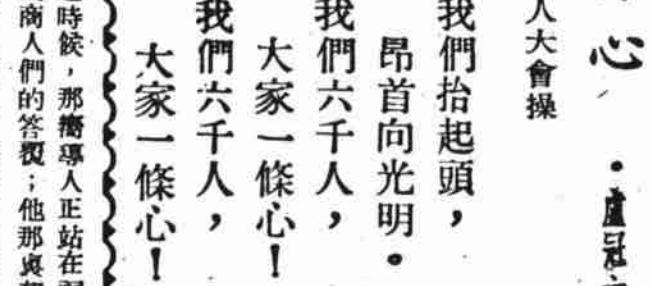 心 ·盧冠
人大會操
我們抬起頭，
昂首向光明。
我們六千人，
大家一條心！
我們六千人，
大家一條心！
時候，那嚮導人正站在
商人們的答覆；他那與